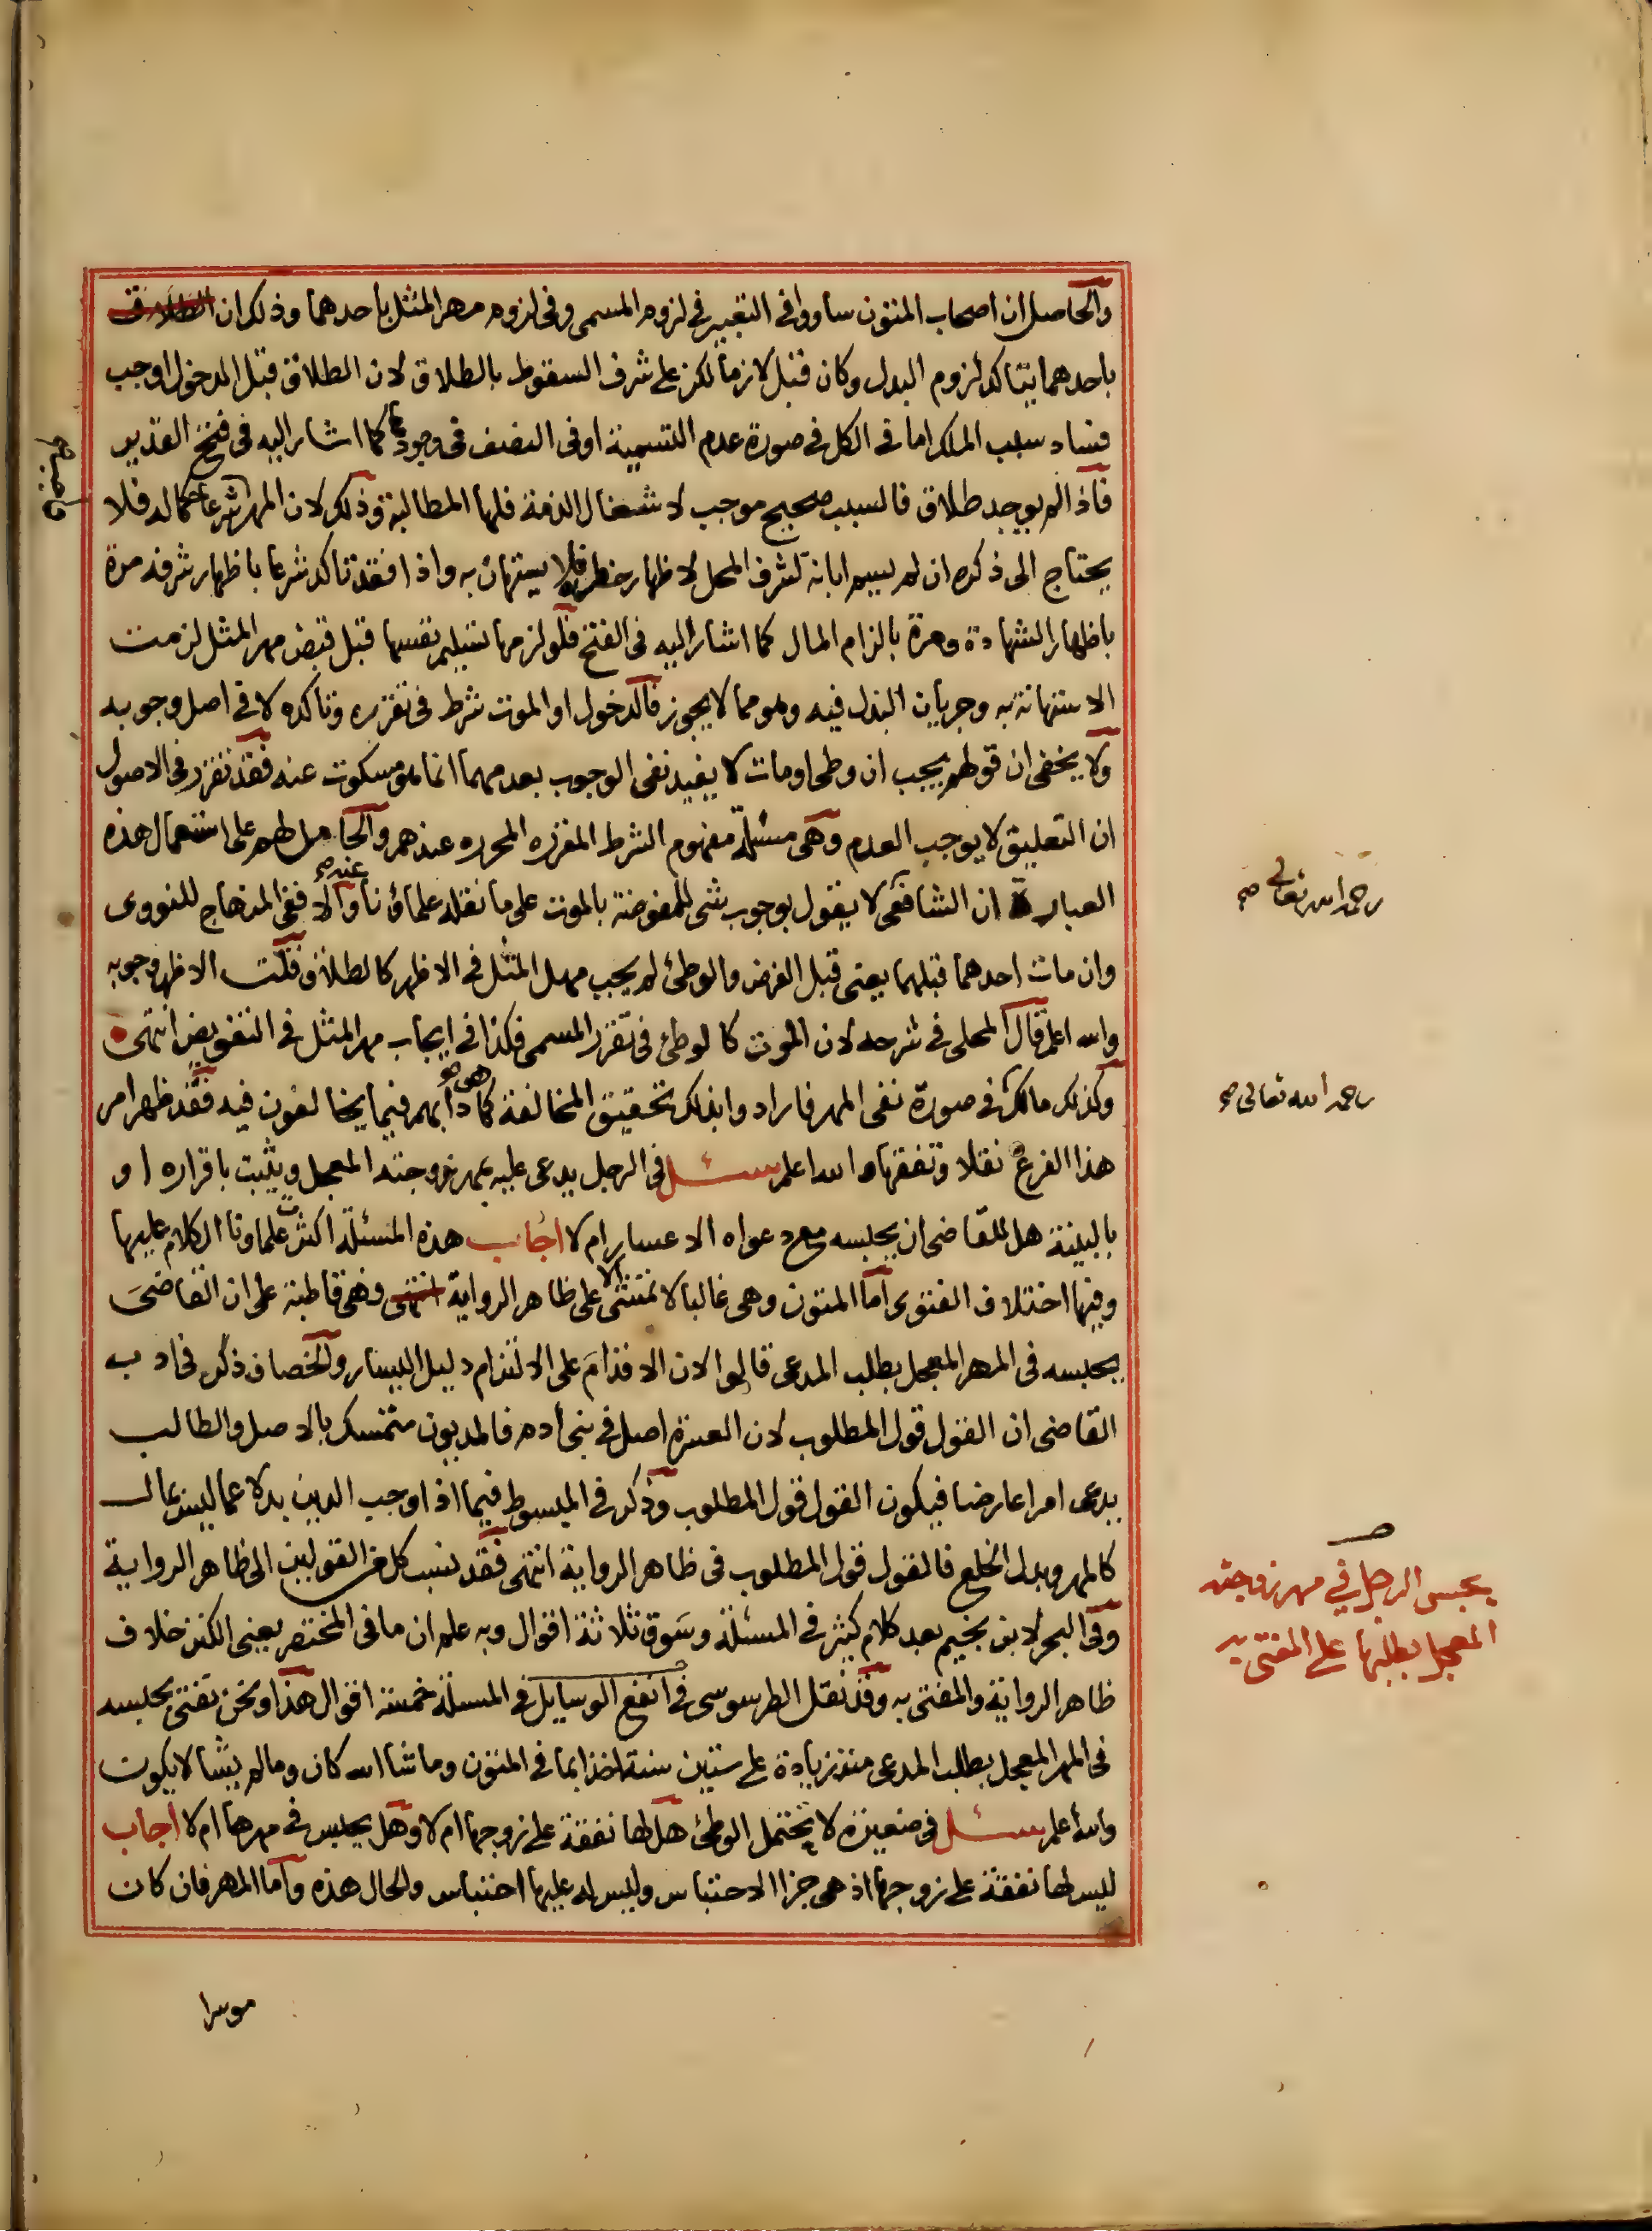 والحاصل ان اصحاب المتون ساووا في التعبير في لزوم المسمى وفي لزوم مهر المثل باحدهما وذلك ان الطلاق
باحدهما يتاكد لزوم البدل وكان قبل لازما لكن على شرف السقوط بالطلاق لان الطلاق قبل الدخول اوجب
فساد سبب الملك اما في الكل في صورة عدم التسمية او في النصف في وجودها كما اشار اليه في فتح القدير
فاذا لم يوجد طلاق فالسبب صحيح موجب لاشتغال الذمة فلها المطالبة وذلك لان المهر شرعا حكما له فلا
يحتاج الى ذكره ان لم يسم ابانة لشرف المحل لاظهار خطره فلا يستهان به واذا فقد تاكد شرعا باظهار شرفه مرة
باظهار الشهادة ومرة بالزام المال كما اشار اليه في الفتح فلو لزمها تسليم نفسها قبل قبض مهر المثل لزمت
الاستهانة به وجريان البذل فيه وهو مما لا يجوز فالدخول او الموت شرط في تقرره وتاكده لا في اصل وجوبه
ولا يخفى ان قولهم يجب ان وطى او مات لا يفيد نفي الوجوب بعدمهما انما هو مسكوت عنه فقد تقرر في الاصول
ان التعليق لا يوجب العدم وهي مسئلة مفهوم الشرط المقرره المحرره عندهم والحامل لهم على استعمال هذه
العبارة ان الشافعي لا يقول بوجوب شي للمفوضة بالموت على ما نقله علماؤنا عنه والا ففي المنهاج للنووى
وان مات احدهما قبلهما يعنى قبل الفرض والوطئ لم يجب مهر المثل في الاظهر كالطلاق قلت الاظهر وجوبه
والله اعلم قال المحلى في شرحه لان الموت كالوطئ في تقرر المسمى فكذا في ايجاب مهر المثل في التفويض انتهى
وكذلك مالك في صورة نفى المهر فارادوا بذلك تحقيق المخالفة كما هو دابهم فيما يخالفون فيه فقد ظهر امر
هذا الفرع نقلا وتفقها والله اعلم سئل في الرجل يدعى عليه بمهر زوجته المعجل ويثبت باقراره او
بالبينة هل للقاضى ان يحبسه مع دعواه الاعسار ام لا اجاب هذه المسئلة اكثرت علماونا الكلام عليها
وفيها اختلاف الفتوى اما المتون وهى غالبا لا تمشى الا على ظاهر الرواية انتهى فهى قاطبة على ان القاضى
يحبسه في المهر المعجل بطلب المدعى قالوا لان الاقدام على الالتزام دليل اليسار والخصاف ذكر في ادب
القاضى ان القول قول المطلوب لان العسرة اصل في بنى آدم فالمديون متمسك بالاصل والطالب
يدعى امرا عارضا فيكون القول قول المطلوب وذكر في المبسوط فيما اذا وجب الدين بدلا عما ليس بمال
كالمهر وبدل الخلع فالقول قول المطلوب فى ظاهر الرواية انتهى فقد نسب كل من القولين الى ظاهر الرواية
وفى البحر لابن نجيم بعد كلام كثير في المسئلة وسوق ثلاثة اقوال وبه علم ان ما في المختصر يعنى الكنز خلاف
ظاهر الرواية والمفتى به وقد نقل الطرسوسى في انفع الوسايل في المسئلة خمسة اقوال هذا ونحن نفتى بحبسه
فى المهر المعجل بطلب المدعى منذ زيادة على ستين سنة اخذا بما في المتون وما شا الله كان وما لم يشا لا يكون
والله اعلم سئل في صغيرة لا تحتمل الوطئ هل لها نفقة على زوجها ام لا وهل يحبس في مهرها ام لا اجاب
ليس لها نفقة على زوجها اذ هى جزا الاحتباس وليس له عليها احتباس والحال هذه واما المهر فان كان
رحمه الله تعالى صح
رحمه الله تعالى صح
يحبس الرجل في مهر زوجته
المعجل بطلبها على المفتى به
موسرا